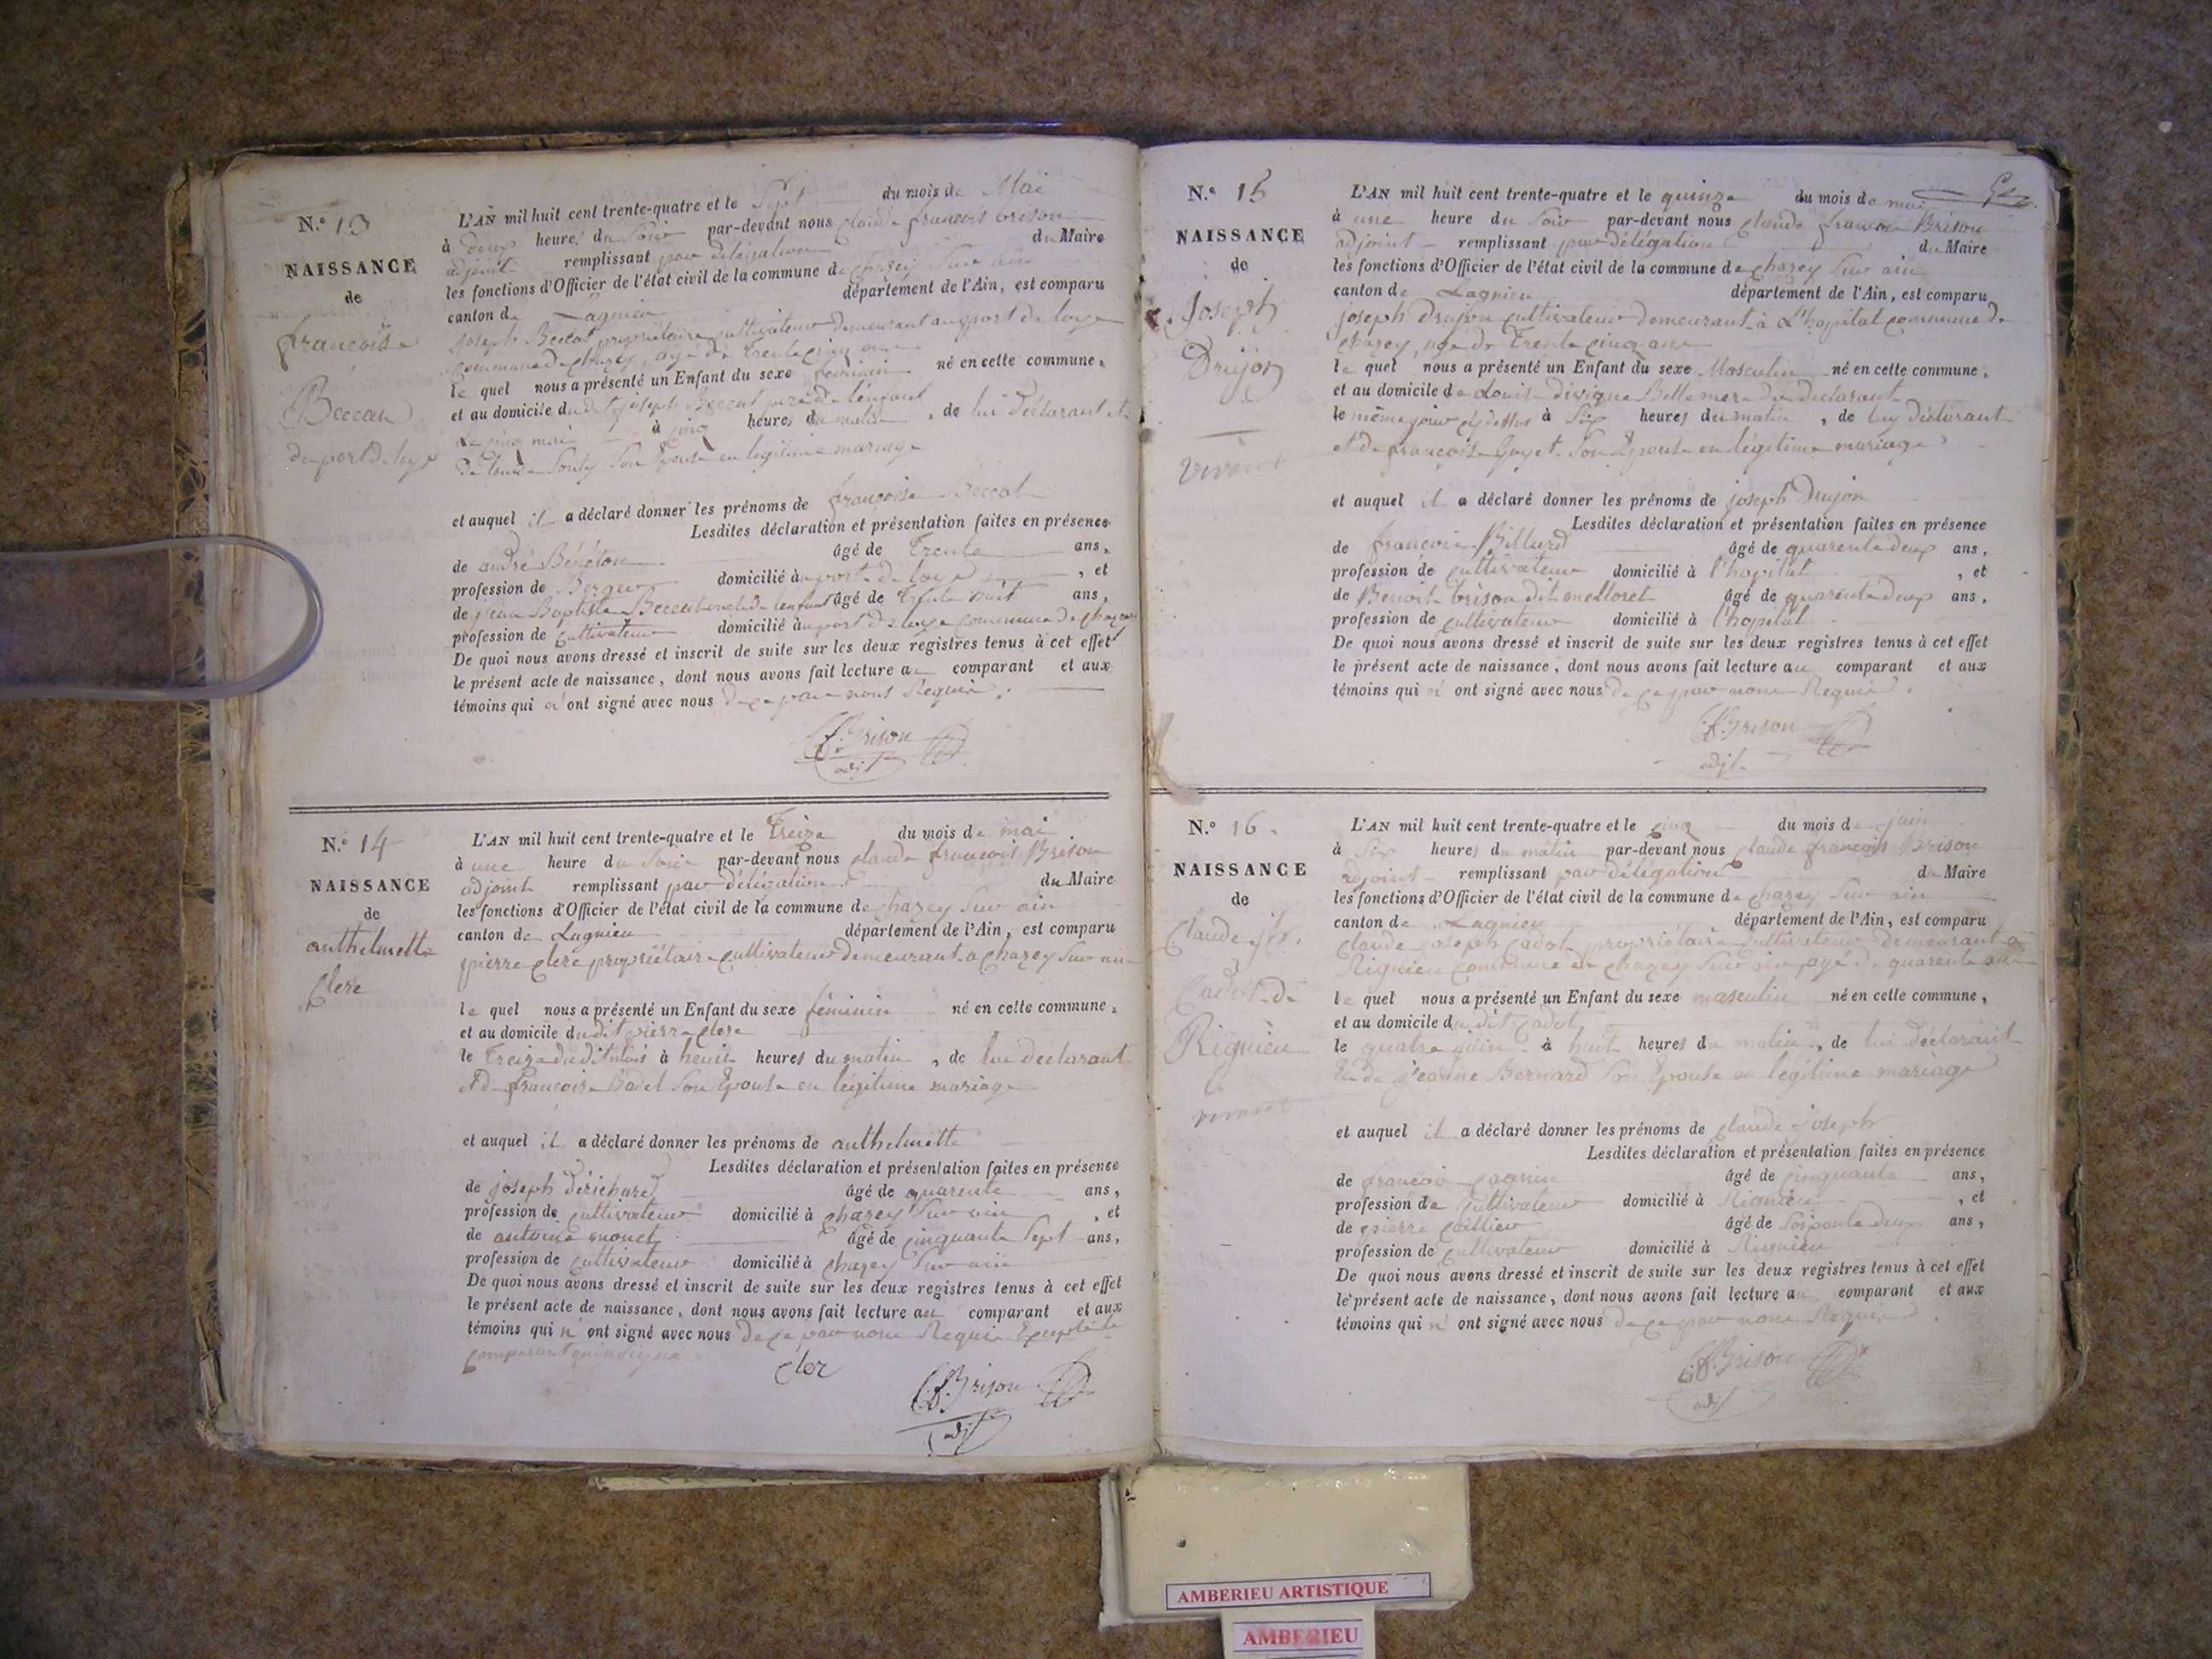 N.° 13
NAISSANCE
de
françoise
Beccat
du port de loye
L'AN mil huit cent trente-quatre et le Sept du mois de Mai
à deux heures du Soir par-devant nous claude françois brison
adjoint remplissant par délégation du Maire
les fonctions d'Officier de l'état civil de la commune de chazey Sur ain
canton de Lagnieu département de l'Ain, est comparu
joseph Beccat propriétaire cultivateur demeurant au port de loye
commune de chazey, agé de trente cinq ans
le quel nous a présenté un Enfant du sexe féminin né en cette commune,
et au domicile du dit joseph Beccat père de l'enfant
Le cinq mai à cinq heures du matin, de lui déclarant et
De Son Épouse en légitime mariage
et auquel il a déclaré donner les prénoms de françoise Beccat
Lesdites déclaration et présentation faites en présence
de andré Bénéton âgé de trente ans,
profession de Berger domicilié au port de loye, et
de jean Baptiste Beccat oncle de lenfant âgé de trente huit ans,
profession de cultivateur domicilié au port de loye commune de chazey
De quoi nous avons dressé et inscrit de suite sur les deux registres tenus à cet effet
le présent acte de naissance, dont nous avons fait lecture au comparant et aux
témoins qui n'ont signé avec nous de ce par nous Requis.
C.f. Brison
adjt
N.° 14
NAISSANCE
de
anthelmette
Clerc
L'AN mil huit cent trente-quatre et le treize du mois de mai
à une heure du Soir par-devant nous claude françois Brison
adjoint remplissant par délégation du Maire
les fonctions d'Officier de l'état civil de la commune de chazey Sur ain
canton de Lagnieu département de l'Ain, est comparu
pierre clerc propriétaire cultivateur demeurant a chazey Sur ain
le quel nous a présenté un Enfant du sexe féminin né en cette commune,
et au domicile du dit pierre clerc
le treize du dit mois à heures du matin, de lui déclarant
et de françoise Badel Son Épouse en légitime mariage
et auquel il a déclaré donner les prénoms de anthelmette
Lesdites déclaration et présentation faites en présence
de joseph dérichard âgé de quarente ans,
profession de cultivateur domicilié à chazey Sur ain, et
de antoine monet âgé de cinquante Sept ans,
profession de cultivateur domicilié à chazey Sur ain
De quoi nous avons dressé et inscrit de suite sur les deux registres tenus à cet effet
le présent acte de naissance, dont nous avons fait lecture au comparant et aux
témoins qui n'ont signé avec nous de ce par nous Requis Excepté le
comparant qui a signé
Cler
C.f. Brison
adjt
N.° 15
NAISSANCE
de
Joseph
Drujon
vivant
L'AN mil huit cent trente-quatre et le quinze du mois de mai
à une heure du Soir par-devant nous claude françois Brison
adjoint remplissant par délégation du Maire
les fonctions d'Officier de l'état civil de la commune de chazey Sur ain
canton de Lagnieu département de l'Ain, est comparu
joseph Drujon cultivateur demeurant à L'hopital commune de
chazey, agé de trente cinq ans
le quel nous a présenté un Enfant du sexe Masculin né en cette commune,
et au domicile de Louise dévigne Belle mere du déclarant
le même jour cy dessus à Six heures du matin, de luy déclarant
et de françoise Guyet Son Épouse en légitime mariage
et auquel il a déclaré donner les prénoms de joseph Drujon
Lesdites déclaration et présentation faites en présence
de françois Billard âgé de quarente deux ans,
profession de cultivateur domicilié à l'hopital, et
de Benoit brison dit melloret âgé de quarente deux ans,
profession de cultivateur domicilié à l'hopital
De quoi nous avons dressé et inscrit de suite sur les deux registres tenus à cet effet
le présent acte de naissance, dont nous avons fait lecture au comparant et aux
témoins qui n'ont signé avec nous de ce par nous Requis.
C.f. Brison
adjt
N.° 16
NAISSANCE
de
Claude jh.
Cadot de
Rignieu
vivant
L'AN mil huit cent trente-quatre et le cinq du mois de juin
à Six heures du matin par-devant nous claude françois Brison
adjoint remplissant par délégation du Maire
les fonctions d'Officier de l'état civil de la commune de chazey Sur ain
canton de Lagnieu département de l'Ain, est comparu
claude joseph Cadot propriétaire cultivateur demeurant a
Rignieu commune de chazey Sur ain agé de quarente ans
le quel nous a présenté un Enfant du sexe masculin né en cette commune,
et au domicile du dit Cadot
le quatre juin à huit heures du matin, de lui déclarant
Et de jeanne Bernard Son Épouse en légitime mariage
et auquel il a déclaré donner les prénoms de claude joseph
Lesdites déclaration et présentation faites en présence
de françois âgé de cinquante ans,
profession de cultivateur domicilié à Rignieu, et
de pierre âgé de Soixante deux ans,
profession de cultivateur domicilié à Rignieu
De quoi nous avons dressé et inscrit de suite sur les deux registres tenus à cet effet
le présent acte de naissance, dont nous avons fait lecture au comparant et aux
témoins qui n'ont signé avec nous de ce par nous Requis.
C.f. Brison
adjt
AMBERIEU ARTISTIQUE
AMBERIEU